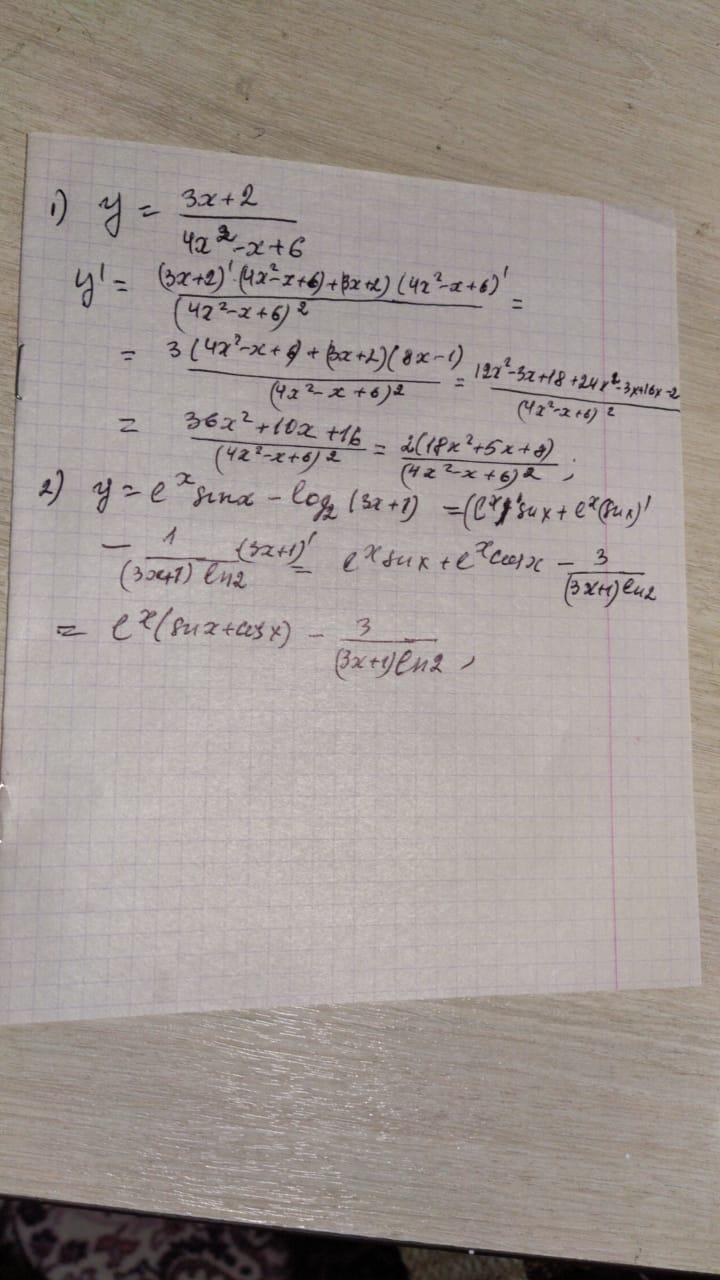 1) y = (3x+2)/(4x²-x+6)
y' = ((3x+2)'·(4x²-x+6)+(3x+2)(4x²-x+6)')/(4x²-x+6)² =
= (3(4x²-x+6)+(3x+2)(8x-1))/(4x²-x+6)² = (12x²-3x+18+24x²-3x+16x-2)/(4x²-x+6)²
= (36x²+10x+16)/(4x²-x+6)² = 2(18x²+5x+8)/(4x²-x+6)²;
2) y = eˣ sinx - log₂(3x+1) = (eˣ)' sinx + eˣ(sinx)'
- 1/((3x+1) ln2) ·(3x+1)' = eˣ sinx + eˣ cosx - 3/((3x+1) ln2)
= eˣ(sinx+cosx) - 3/((3x+1) ln2),